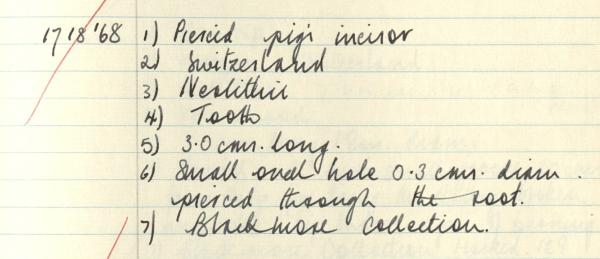 1718'68 1) Pierced pig's incisor
2) Switzerland
3) Neolithic
4) Tooth
5) 3.0 cms. long.
6) Small oval hole 0.3 cms. diam.
pierced through the root.
7) Blackmore collection.